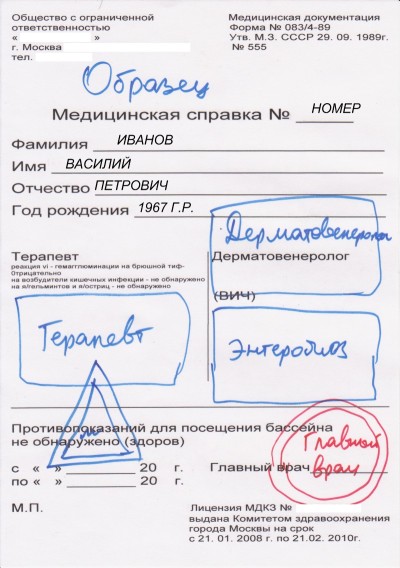 Общество с ограниченной
ответственностью
« »
г. Москва
тел.
Медицинская документация
Форма № 083/4-89
Утв. М.З. СССР 29. 09. 1989г.
№ 555
Образец
Медицинская справка № НОМЕР
Фамилия ИВАНОВ
Имя ВАСИЛИЙ
Отчество ПЕТРОВИЧ
Год рождения 1967 Г.Р.
Дерматовенеролог
Терапевт
реакция vi - гемагглюминации на брюшной тиф-
отрицательно
на возбудители кишечных инфекции - не обнаружено
на я/гельминтов и я/остриц - не обнаружено
Дерматовенеролог
(ВИЧ)
Терапевт
Энтеробиоз
М
Противопоказаний для посещения бассейна
не обнаружено (здоров)
Главный врач
с « » 20 г.
Главный врач
по « » 20 г.
М.П.
Лицензия МДКЗ №
выдана Комитетом здравоохранения
города Москвы на срок
с 21. 01. 2008 г. по 21.02. 2010г.